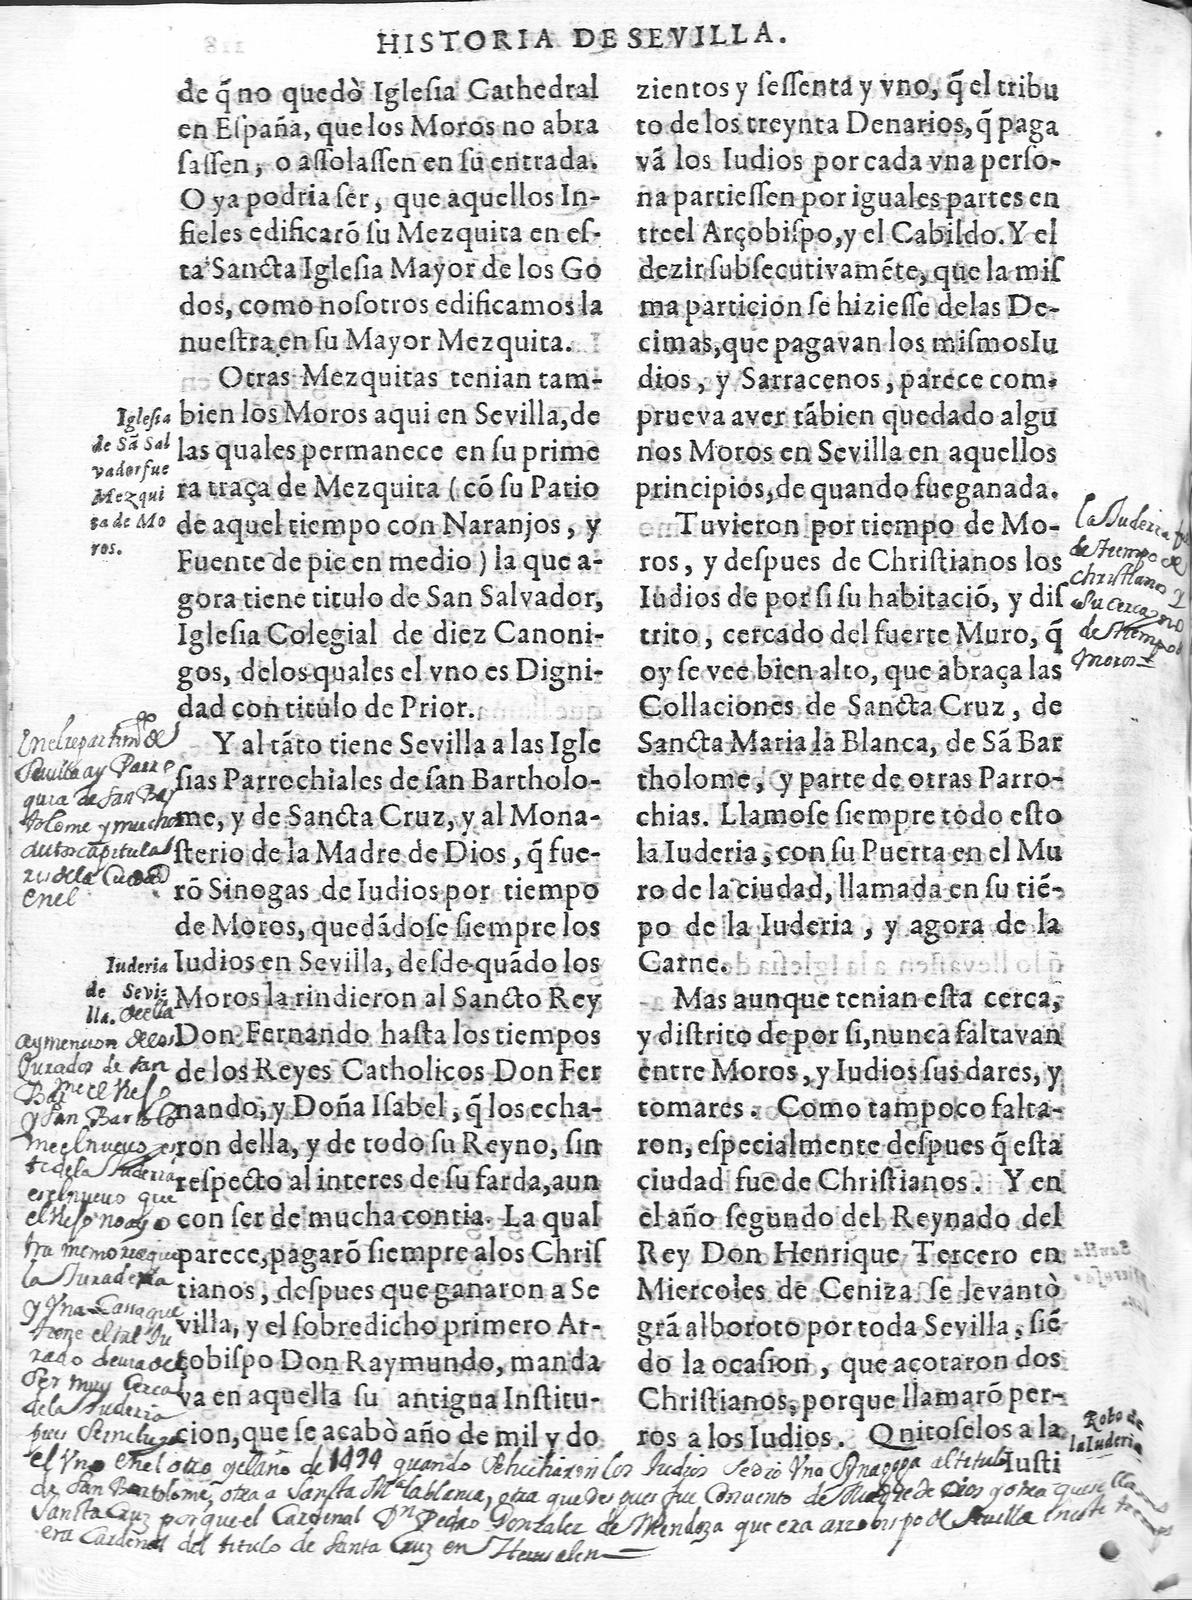 HISTORIA DE SEVILLA.
de q̃ no quedò Iglesia Cathedral
en España, que los Moros no abra
sassen, o assolassen en su entrada.
O ya podria ser, que aquellos In-
fieles edificarõ su Mezquita en es-
ta Sancta Iglesia Mayor de los Go
dos, como nosotros edificamos la
nuestra en su Mayor Mezquita.
Otras Mezquitas tenian tam-
bien los Moros aqui en Sevilla, de
las quales permanece en su prime
ra traça de Mezquita (cõ su Patio
de aquel tiempo con Naranjos, y
Fuente de pie en medio) la que a-
gora tiene titulo de San Salvador,
Iglesia Colegial de diez Canoni-
gos, delos quales el vno es Digni-
dad con titulo de Prior.
Y al tãto tiene Sevilla a las Igle
sias Parrochiales de san Bartholo-
me, y de Sancta Cruz, y al Mona-
sterio de la Madre de Dios, q̃ fue-
rõ Sinogas de Iudios por tiempo
de Moros, quedãdose siempre los
Iudios en Sevilla, desde quãdo los
Moros la rindieron al Sancto Rey
Don Fernando hasta los tiempos
de los Reyes Catholicos Don Fer
nando, y Doña Isabel, q̃ los echa-
ron della, y de todo su Reyno, sin
respecto al interes de su farda, aun
con ser de mucha contia. La qual
parece, pagarõ siempre a los Chris
tianos, despues que ganaron a Se
villa, y el sobredicho primero Ar-
çobispo Don Raymundo, manda
va en aquella su antigua Institu-
cion, que se acabò año de mil y do
Iglesia
de Sã Sal
vador fue
Mezqui
ta de Mo
ros.
En el repartim.to de
Sevilla ay Parro
quia de San Bar
tolome y muchos
autos capitula
res de la Ciudad
en el
Iuderia
de Sevi-
lla.
ay mencion de los
Jurados de San
y San Bartolo
me el nuevo
es el nuevo que
el viejo no ay o
tra memoria que
la Juraderia
y Vna
ser muy cerca
de la Juderia
zientos y sessenta y vno, q̃ el tribu
to de los treynta Denarios, q̃ paga
vã los Iudios por cada vna perso-
na partiessen por iguales partes en
tre el Arçobispo, y el Cabildo. Y el
dezir subsecutivamẽte, que la mis
ma particion se hiziesse delas De-
cimas, que pagavan los mismos Iu
dios, y Sarracenos, parece com-
prueva aver tãbien quedado algu
nos Moros en Sevilla en aquellos
principios, de quando fue ganada.
Tuvieron por tiempo de Mo-
ros, y despues de Christianos los
Iudios de por si su habitaciõ, y dis
trito, cercado del fuerte Muro, q̃
oy se vee bien alto, que abraça las
Collaciones de Sancta Cruz, de
Sancta Maria la Blanca, de Sã Bar
tholome, y parte de otras Parro-
chias. Llamose siempre todo esto
la Iuderia, con su Puerta en el Mu
ro de la ciudad, llamada en su tiẽ-
po de la Iuderia, y agora de la
Carne.
Mas aunque tenian esta cerca,
y distrito de por si, nunca faltavan
entre Moros, y Iudios sus dares, y
tomares. Como tampoco falta-
ron, especialmente despues q̃ esta
ciudad fue de Christianos. Y en
el año segundo del Reynado del
Rey Don Henrique Tercero en
Miercoles de Ceniza se levantò
grã alboroto por toda Sevilla, siẽ
do la ocasion, que açotaron dos
Christianos, porque llamarõ per-
ros a los Iudios. Quitoselos a la
Iusti
la Juderia
de tiempo de
christianos y
su cerca no
de tiempo de
moros
Robo de
la Iuderia
el Vno en el otro y el año de 1494 quando se echaron los Judios se dio Vna Synagoga al titulo
de San Bartolome, otra a Santa M.a la blanca, otra que despues fue Convento de Madre de Dios y otra que se llama
Sancta Cruz porque el Cardenal Dn Pedro Gonzalez de Mendoza que era arzobispo de Sevilla en este tiempo
era Cardenal del titulo de Santa Cruz en Jerusalen